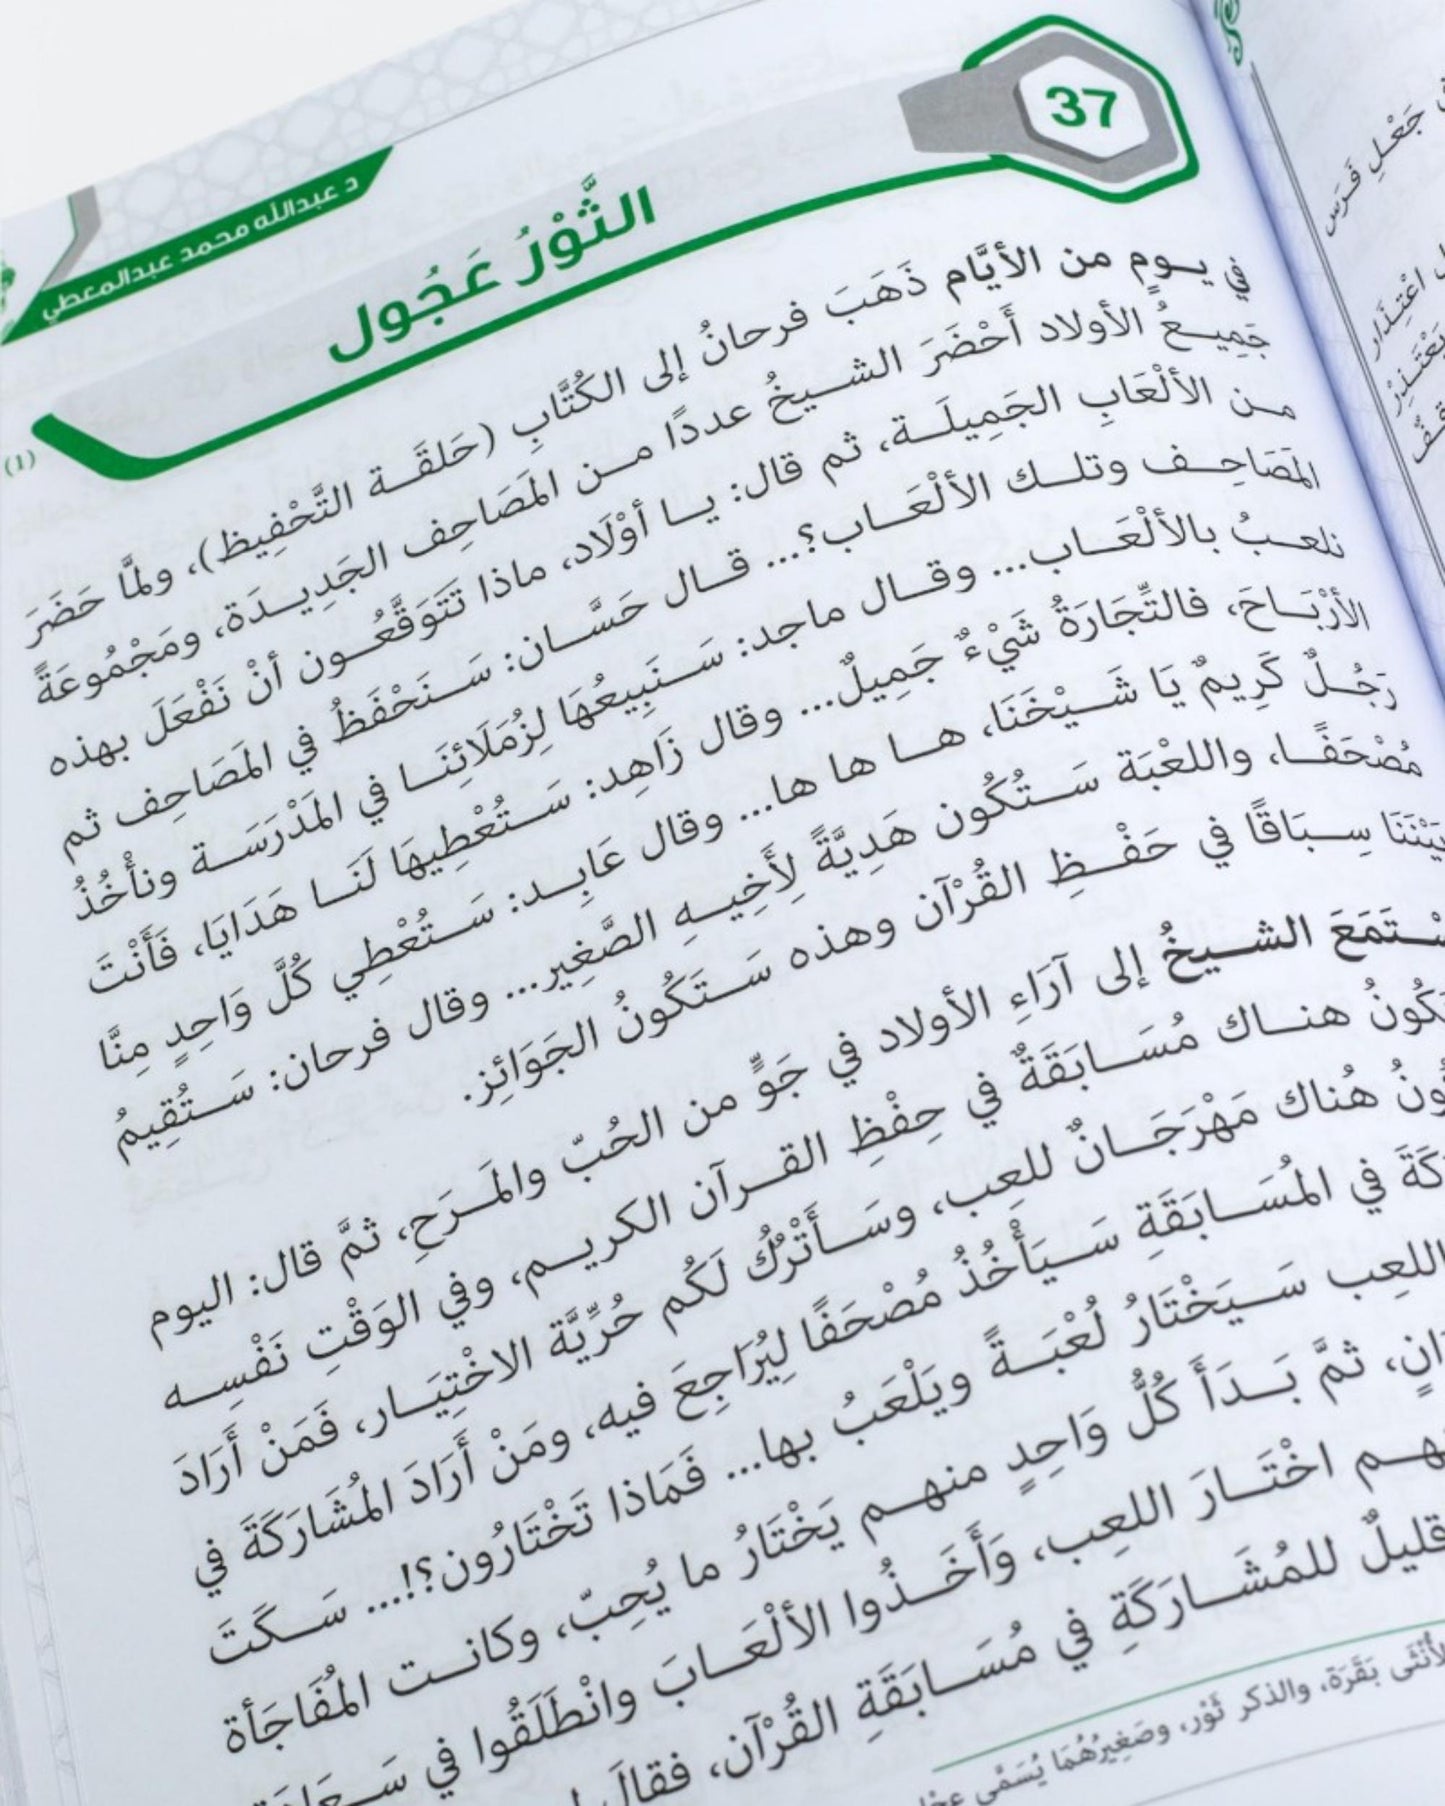 37
د عبدالله محمد عبدالمعطي
الثَّوْرُ عَجُول
(1)
في يــومٍ من الأيَّام ذَهَبَ فرحانُ إلى الكُتَّابِ (حَلقَــة التَّحْفِيظ)، ولمَّا حَضَرَ
جَمِيــعُ الأولاد أَحْضَرَ الشــيخُ عددًا مــن المَصَاحِف الجَدِيــدَة، ومَجْمُوعَةً
مــن الألْعَابِ الجَمِيلَــة، ثم قال: يــا أوْلَاد، ماذا تَتَوَقَّعُــون أنْ نَفْعَلَ بهذه
المَصَاحِــف وتلــك الألْعَــاب؟... قــال حَسَّــان: سَــنَحْفَظُ في المَصَاحِف ثم
نلعــبُ بالألْعَــاب... وقــال ماجد: سَــنَبِيعُهَا لِزُمَلَائِنَــا في المَدْرَسَــة ونأْخُذُ
الأَرْبَــاحَ، فالتِّجَارَةُ شَيْءٌ جَمِيلٌ... وقال زَاهِد: سَــتُعْطِيهَا لَنَــا هَدَايَا، فَأَنْتَ
رَجُــلٌ كَرِيمٌ يَا شَــيْخَنَا، هــا ها ها... وقال عَابِــد: سَــتُعْطِي كُلَّ وَاحِدٍ مِنَّا
مُصْحَفًــا، واللعْبَة سَــتُكُون هَدِيَّةً لِأَخِيــهِ الصَّغِير... وقال فرحان: سَــتُقِيمُ
بَيْنَنَا سِــبَاقًا في حَفْــظِ القُرْآن وهذه سَــتَكُونُ الجَوَائِز.
الشــيخُ إلى آرَاءِ الأولاد في جَوٍّ من الحُبّ والمَــرَحِ، ثمَّ قال: اليوم
هنــاك مُسَــابَقَةٌ في حِفْظِ القــرآن الكريــم، وفي الوَقْتِ نَفْسِــه
هُناك مَهْرَجَــانٌ للعِب، وسَــأَتْرُكُ لَكُم حُرِّيَّة الاخْتِيَــار، فَمَنْ أَرَادَ
في المُسَــابَقَةِ سَــيَأْخُذُ مُصْحَفًا لِيُرَاجِعَ فيه، ومَنْ أَرَادَ المُشَارَكَةَ في
اللعِب سَــيَخْتَارُ لُعْبَــةً ويَلْعَبُ بها... فَمَاذا تَخْتَارُون؟!... سَــكَتَ
ثمَّ بَــدَأَ كُلُّ وَاحِدٍ منهــم يَخْتَارُ ما يُحِبّ، وكانــت المُفَاجَأة
اخْتَــارَ اللعِب، وَأَخَــذُوا الألْعَــابَ وانْطَلَقُوا في
قليلٌ للمُشَــارَكَةِ في مُسَــابَقَةِ القُرْآن، فقالَ
بَقَرَة، والذكر ثَوْر، وصَغِيرُهُمَا يُسَمَّى
جَعْلِ فَرَس
اعْتِذَار